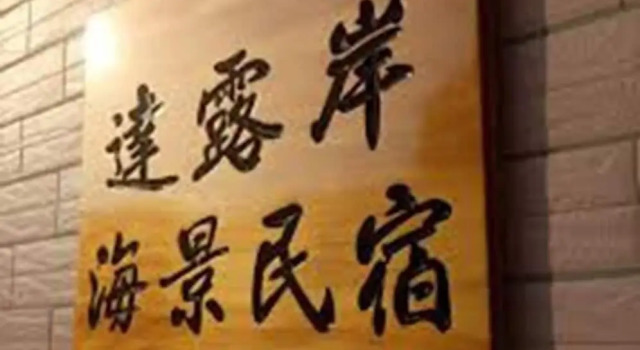 達露岸
海景民宿